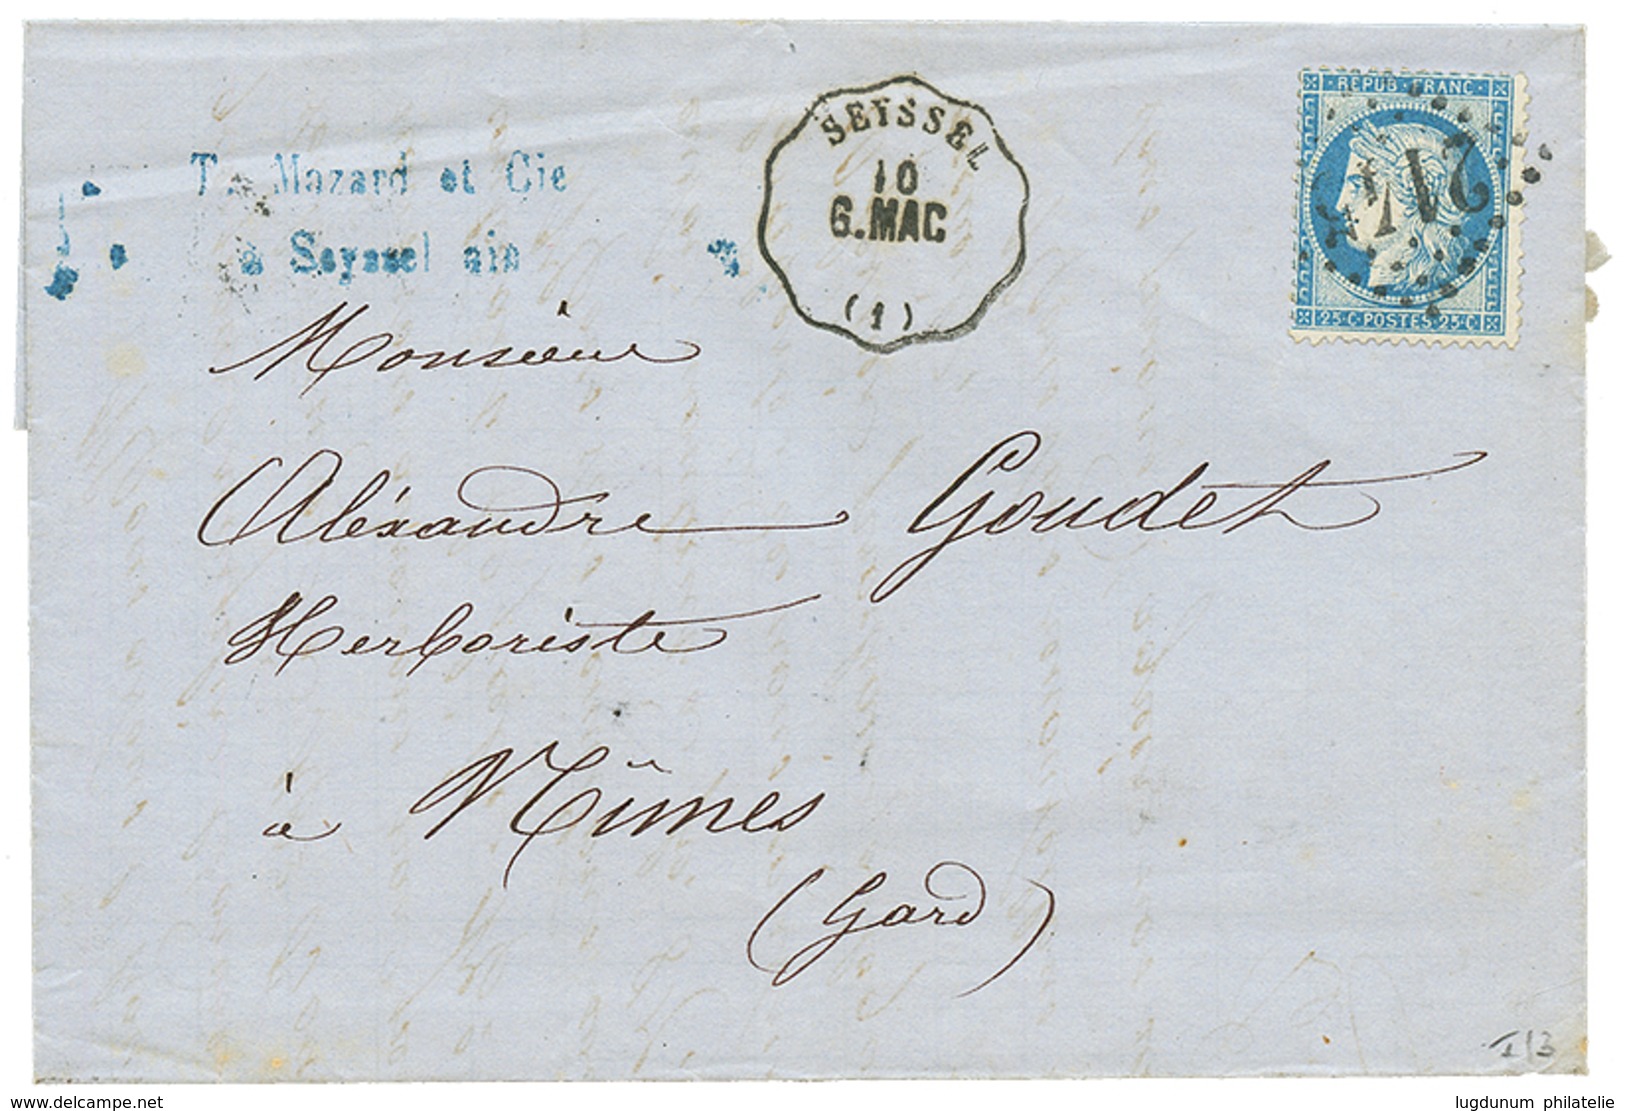 REPUB·FRANC·
25·C·POSTES·25·C
SEYSSEL
10
G.MAC
(1)
Mazard et Cie
a Seyssel ain
Monsieur
Aléxandre Goudet
Herboriste
à Nîmes
(Gard)
I/3
www.delcampe.net
lugdunum philatelie